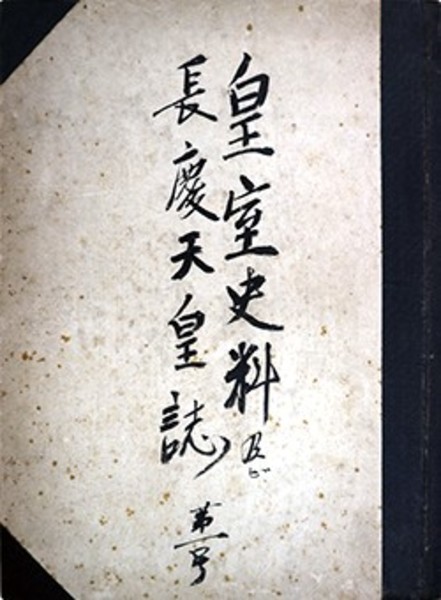 皇室史料及び
長慶天皇誌
第一号